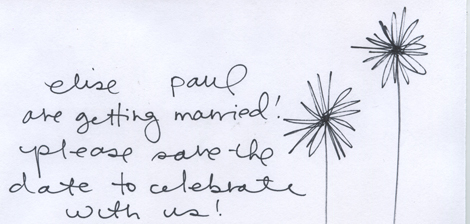 elise paul
are getting married!
please save the
date to celebrate
with us!